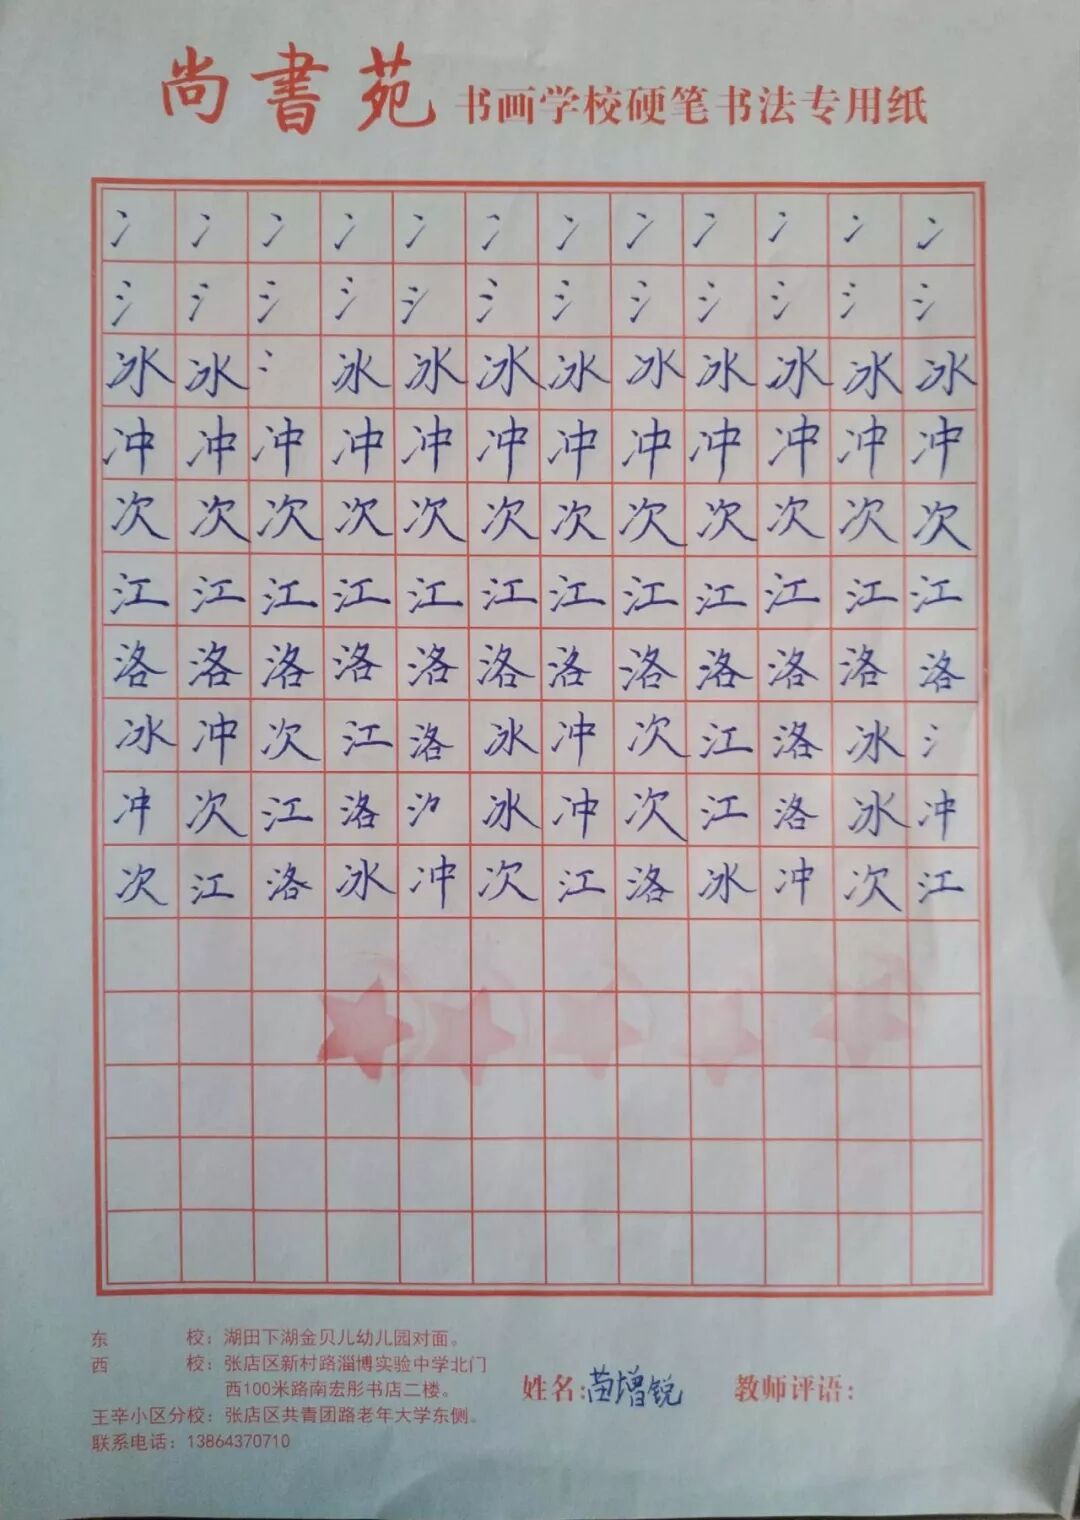 尚書苑 书画学校硬笔书法专用纸
冫冫冫冫冫冫冫冫冫冫冫冫
氵氵氵氵氵氵氵氵氵氵氵氵
冰冰冫冰冰冰冰冰冰冰冰冰
冲冲冲冲冲冲冲冲冲冲冲冲
次次次次次次次次次次次次
江江江江江江江江江江江江
洛洛洛洛洛洛洛洛洛洛洛洛
冰冲次江洛冰冲次江洛冰冫
冲次江洛冰冲次江洛冰冲
次江洛冰冲次江洛冰冲次江
东 校：湖田下湖金贝儿幼儿园对面。
西 校：张店区新村路淄博实验中学北门
西100米路南宏彤书店二楼。
王辛小区分校：张店区共青团路老年大学东侧。
联系电话：13864370710
姓名：苗增锐 教师评语：